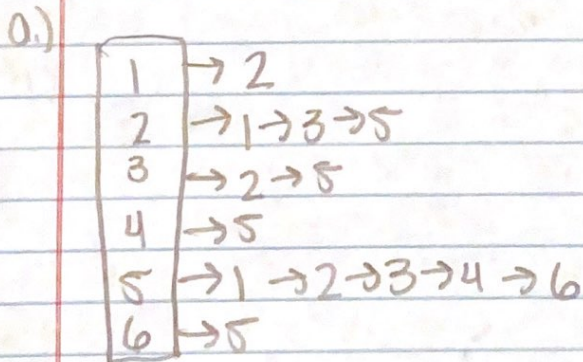 0.)
1 → 2
2 → 1 → 3 → 5
3 → 2 → 5
4 → 5
5 → 1 → 2 → 3 → 4 → 6
6 → 5